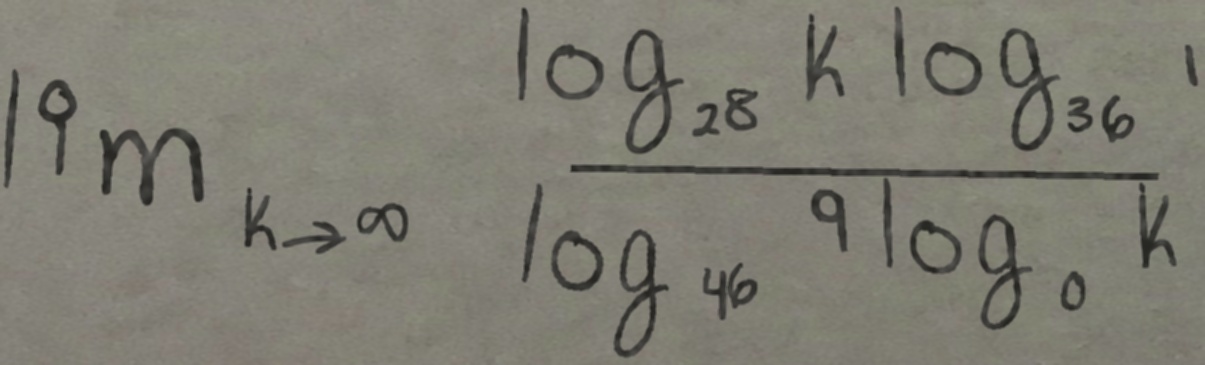 lim_{k→∞} \frac{log_{28} k log_{36} 1}{log_{46} 9 log_{0} k}